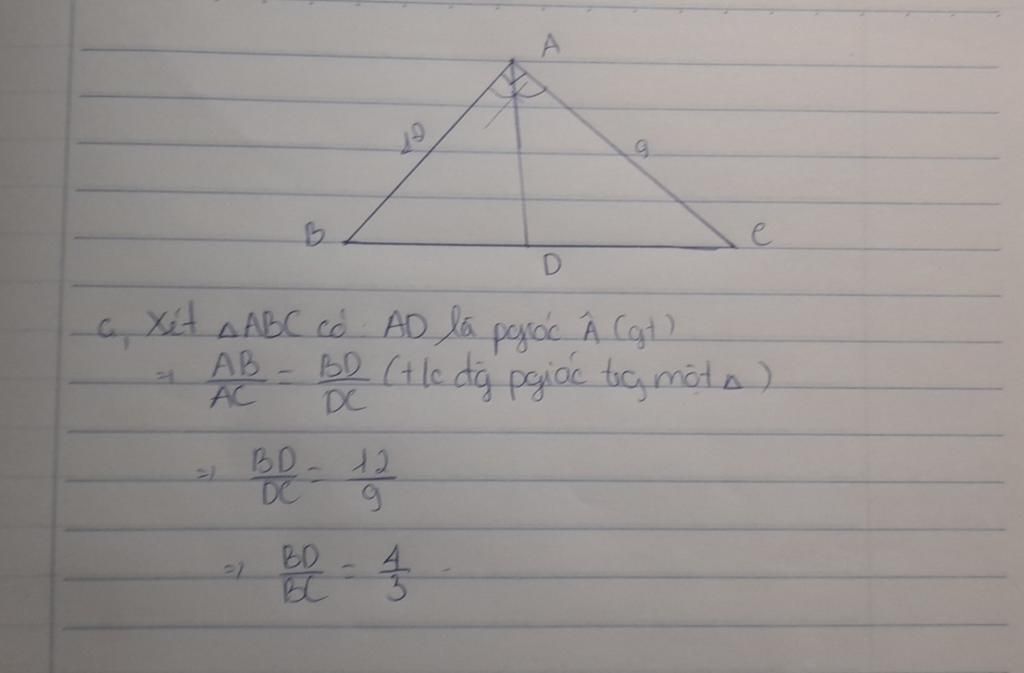 A
12
9
B
C
D
a, Xét △ABC có AD là pgiác Â (gt)
⇒ AB/AC = BD/DC (t/c đg pgiác trg một △)
⇒ BD/DC = 12/9
⇒ BD/BC = 4/3